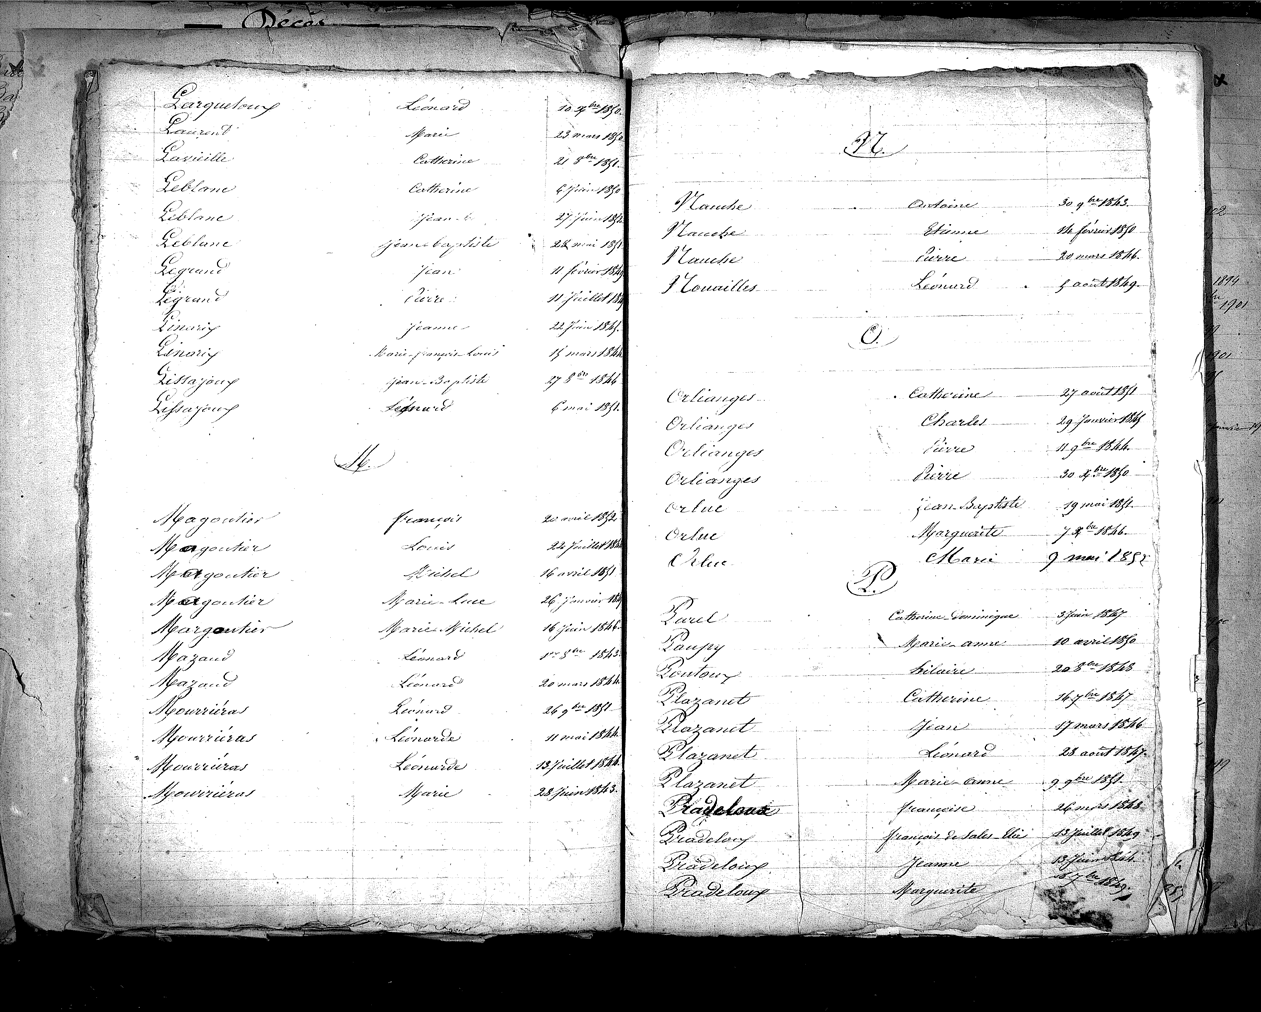 Décès
Larqueloux Léonard 10 Xbre 1850.
Laurent Marie 23 mars 1850
Lavieille Catherine 21 8bre 1851.
Leblanc Catherine 6 Juin 1850
Leblanc Jean-b. 27 Juin 1852
Leblanc Jean-baptiste 22 mai 1851
Legrand Jean 11 février 1849
Legrand Pierre 11 Juillet
Linarix Jeanne 22 Juin 1845.
Linarix Marie-françois-Louis 15 mars 1844
Lissajoux Jean-Baptiste 27 8bre 1846
Lissajoux Léonard 6 mai 1851.
M.
Magoutier françois 20 avril 1852.
Magoutier Louis 22 Juillet
Magoutier Michel 16 avril 1851
Magoutier Marie-Luce 26 Janvier
Margoutier Marie-Michel 16 Juin 1846.
Mazaud Léonard 1er 8bre 1843.
Mazaud Léonard 20 mars 1844.
Mourriéras Léonard 26 9bre 1851
Mourriéras Léonarde 11 mai 1844.
Mourriéras Léonarde 13 Juillet 1846.
Mourriéras Marie 28 Juin 1843.
N.
Nauche Antoine 30 9bre 1843.
Nauche Etienne 14 février 1850
Nauche Pierre 20 mars 1846.
Nouailles Léonard 5 août 1849.
O.
Orlianges Catherine 27 août 1851
Orlianges Charles 29 Janvier 1845
Orlianges Pierre 11 9bre 1844.
Orlianges Pierre 30 Xbre 1850
Orluc Jean-Baptiste 19 mai 1851.
Orluc Marguerite 7 Xbre 1846.
Orluc Marie 9 mai 1852
P.
Parel Catherine-Dominique 3 Juin 1847
Paupy Marie-anne 10 avril 1850
Pontoux hilaire 20 8bre 1848
Plazanet Catherine 16 7bre 1847
Plazanet Jean 17 mars 1846
Plazanet Léonard 28 août 1847.
Plazanet Marie-Anne 9 9bre 1851.
Pradeloux françoise 26 mars 1848
Pradeloux françois de Sales-Elie 13 Juillet 1849
Pradeloux Jeanne 13 Juin
Pradeloux Marguerite 7bre 1849.